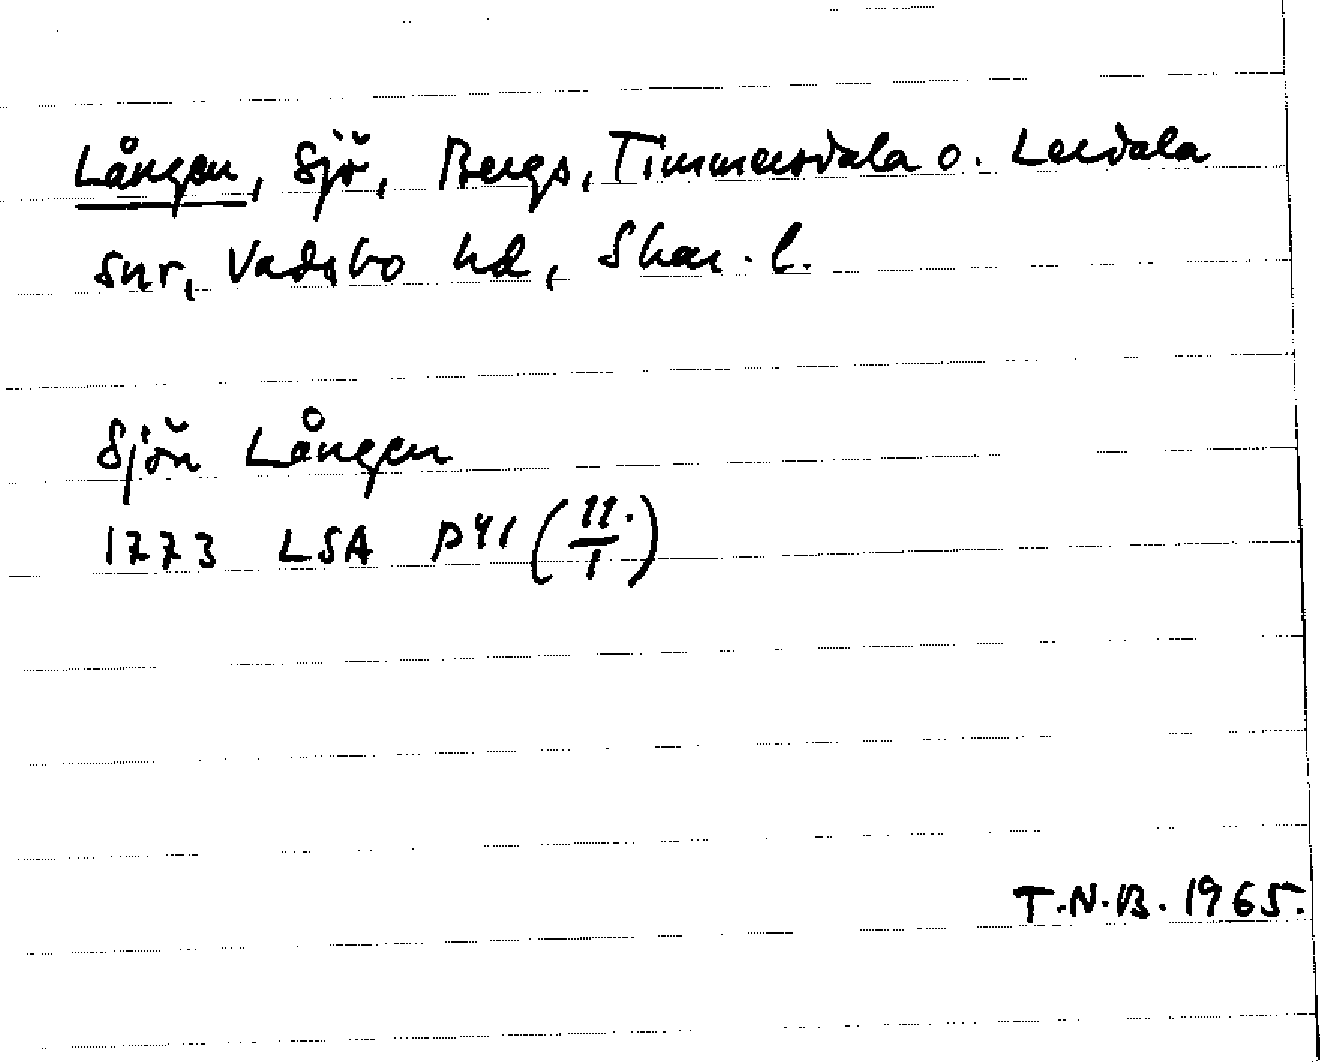 Lången, Sjö, Bergs, Timmersdala o. Lerdala
snr, Vadsbo hd, Skar. l.
Sjön Lången
1773 LSA P41 (11./1)
T.N.B. 1965.